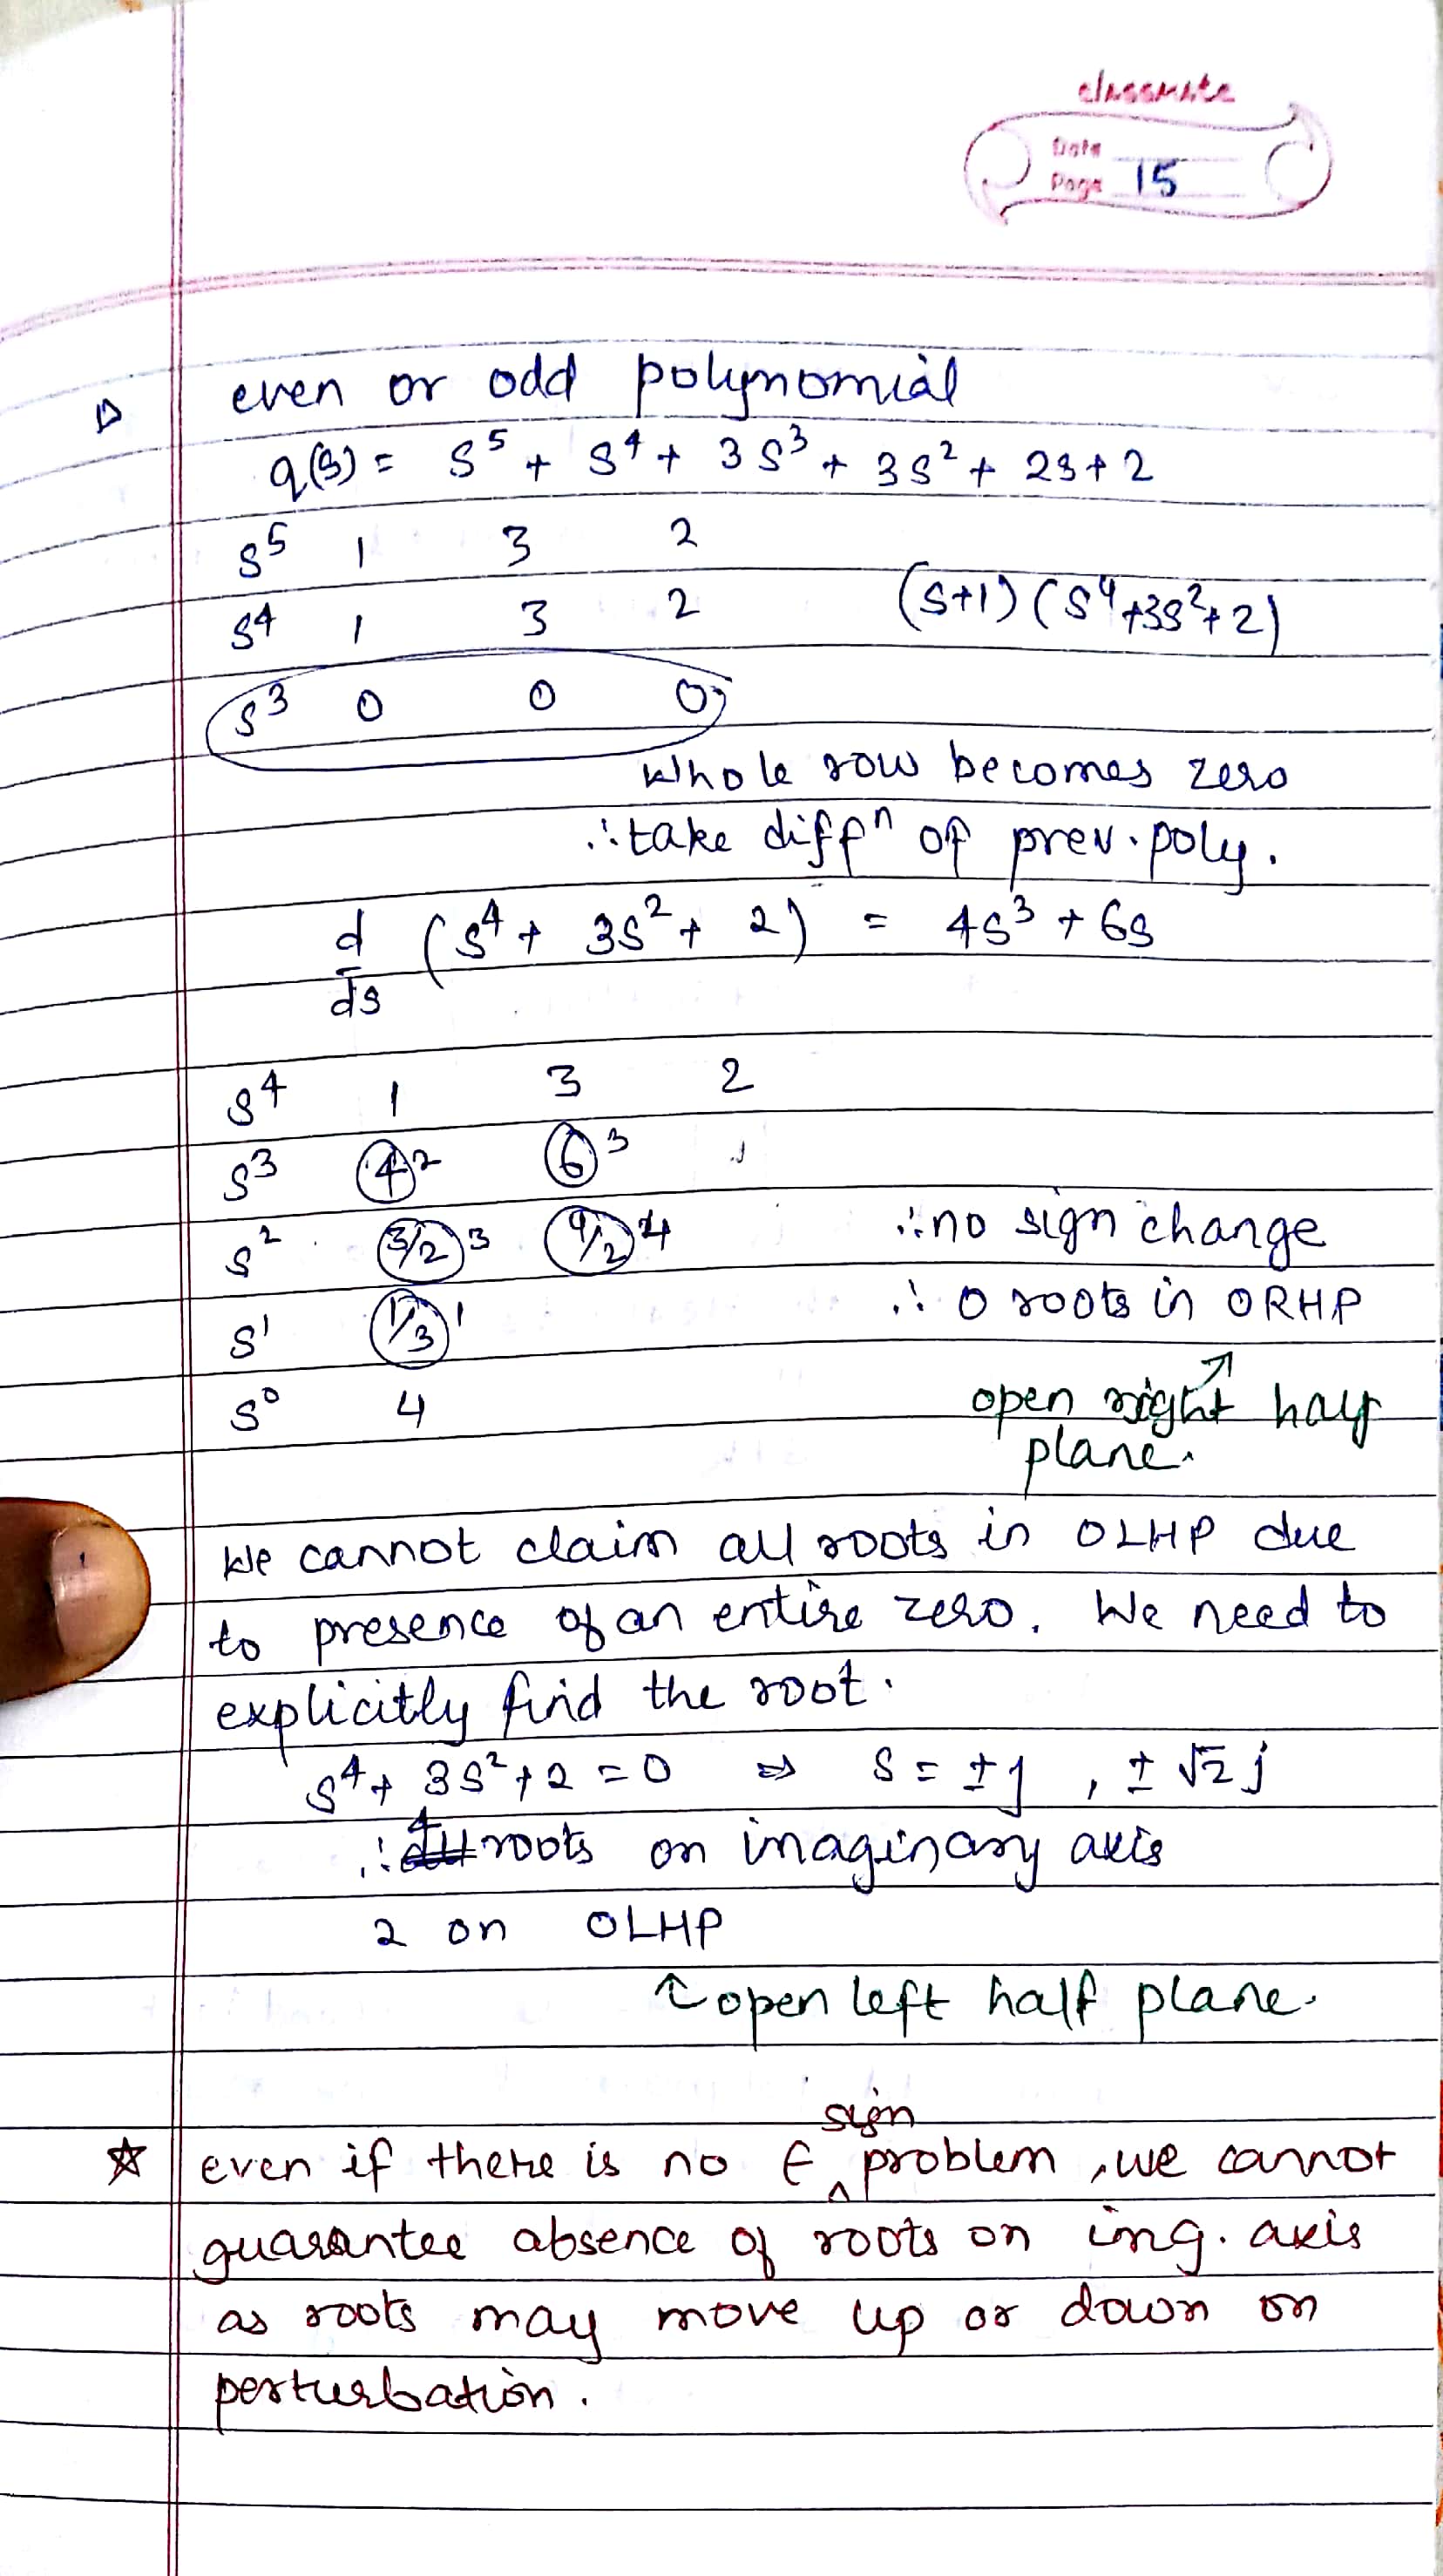 classmate
Date
Page 15
even or odd polynomial
q(s) = s⁵ + s⁴ + 3s³ + 3s² + 2s + 2
s⁵ 1 3 2
s⁴ 1 3 2 (s+1)(s⁴+3s²+2)
s³ 0 0 0
Whole row becomes zero
∴ take diffⁿ of prev. poly.
d/ds (s⁴ + 3s² + 2) = 4s³ + 6s
s⁴ 1 3 2
s³ 4 2 6 3
s² 3/2 3 4
∴ no sign change
s¹ 1/3 1
∴ 0 roots in ORHP
s⁰ 4
open right half
plane.
We cannot claim all roots in OLHP due
to presence of an entire zero. We need to
explicitly find the root.
s⁴ + 3s² + 2 = 0 ⇒ s = ±j , ± √2 j
∴ 4 roots on imaginary axis
2 on OLHP
↑ open left half plane.
☆ even if there is no ϵ sign problem, we cannot
guarantee absence of roots on img. axis
as roots may move up or down on
perturbation.